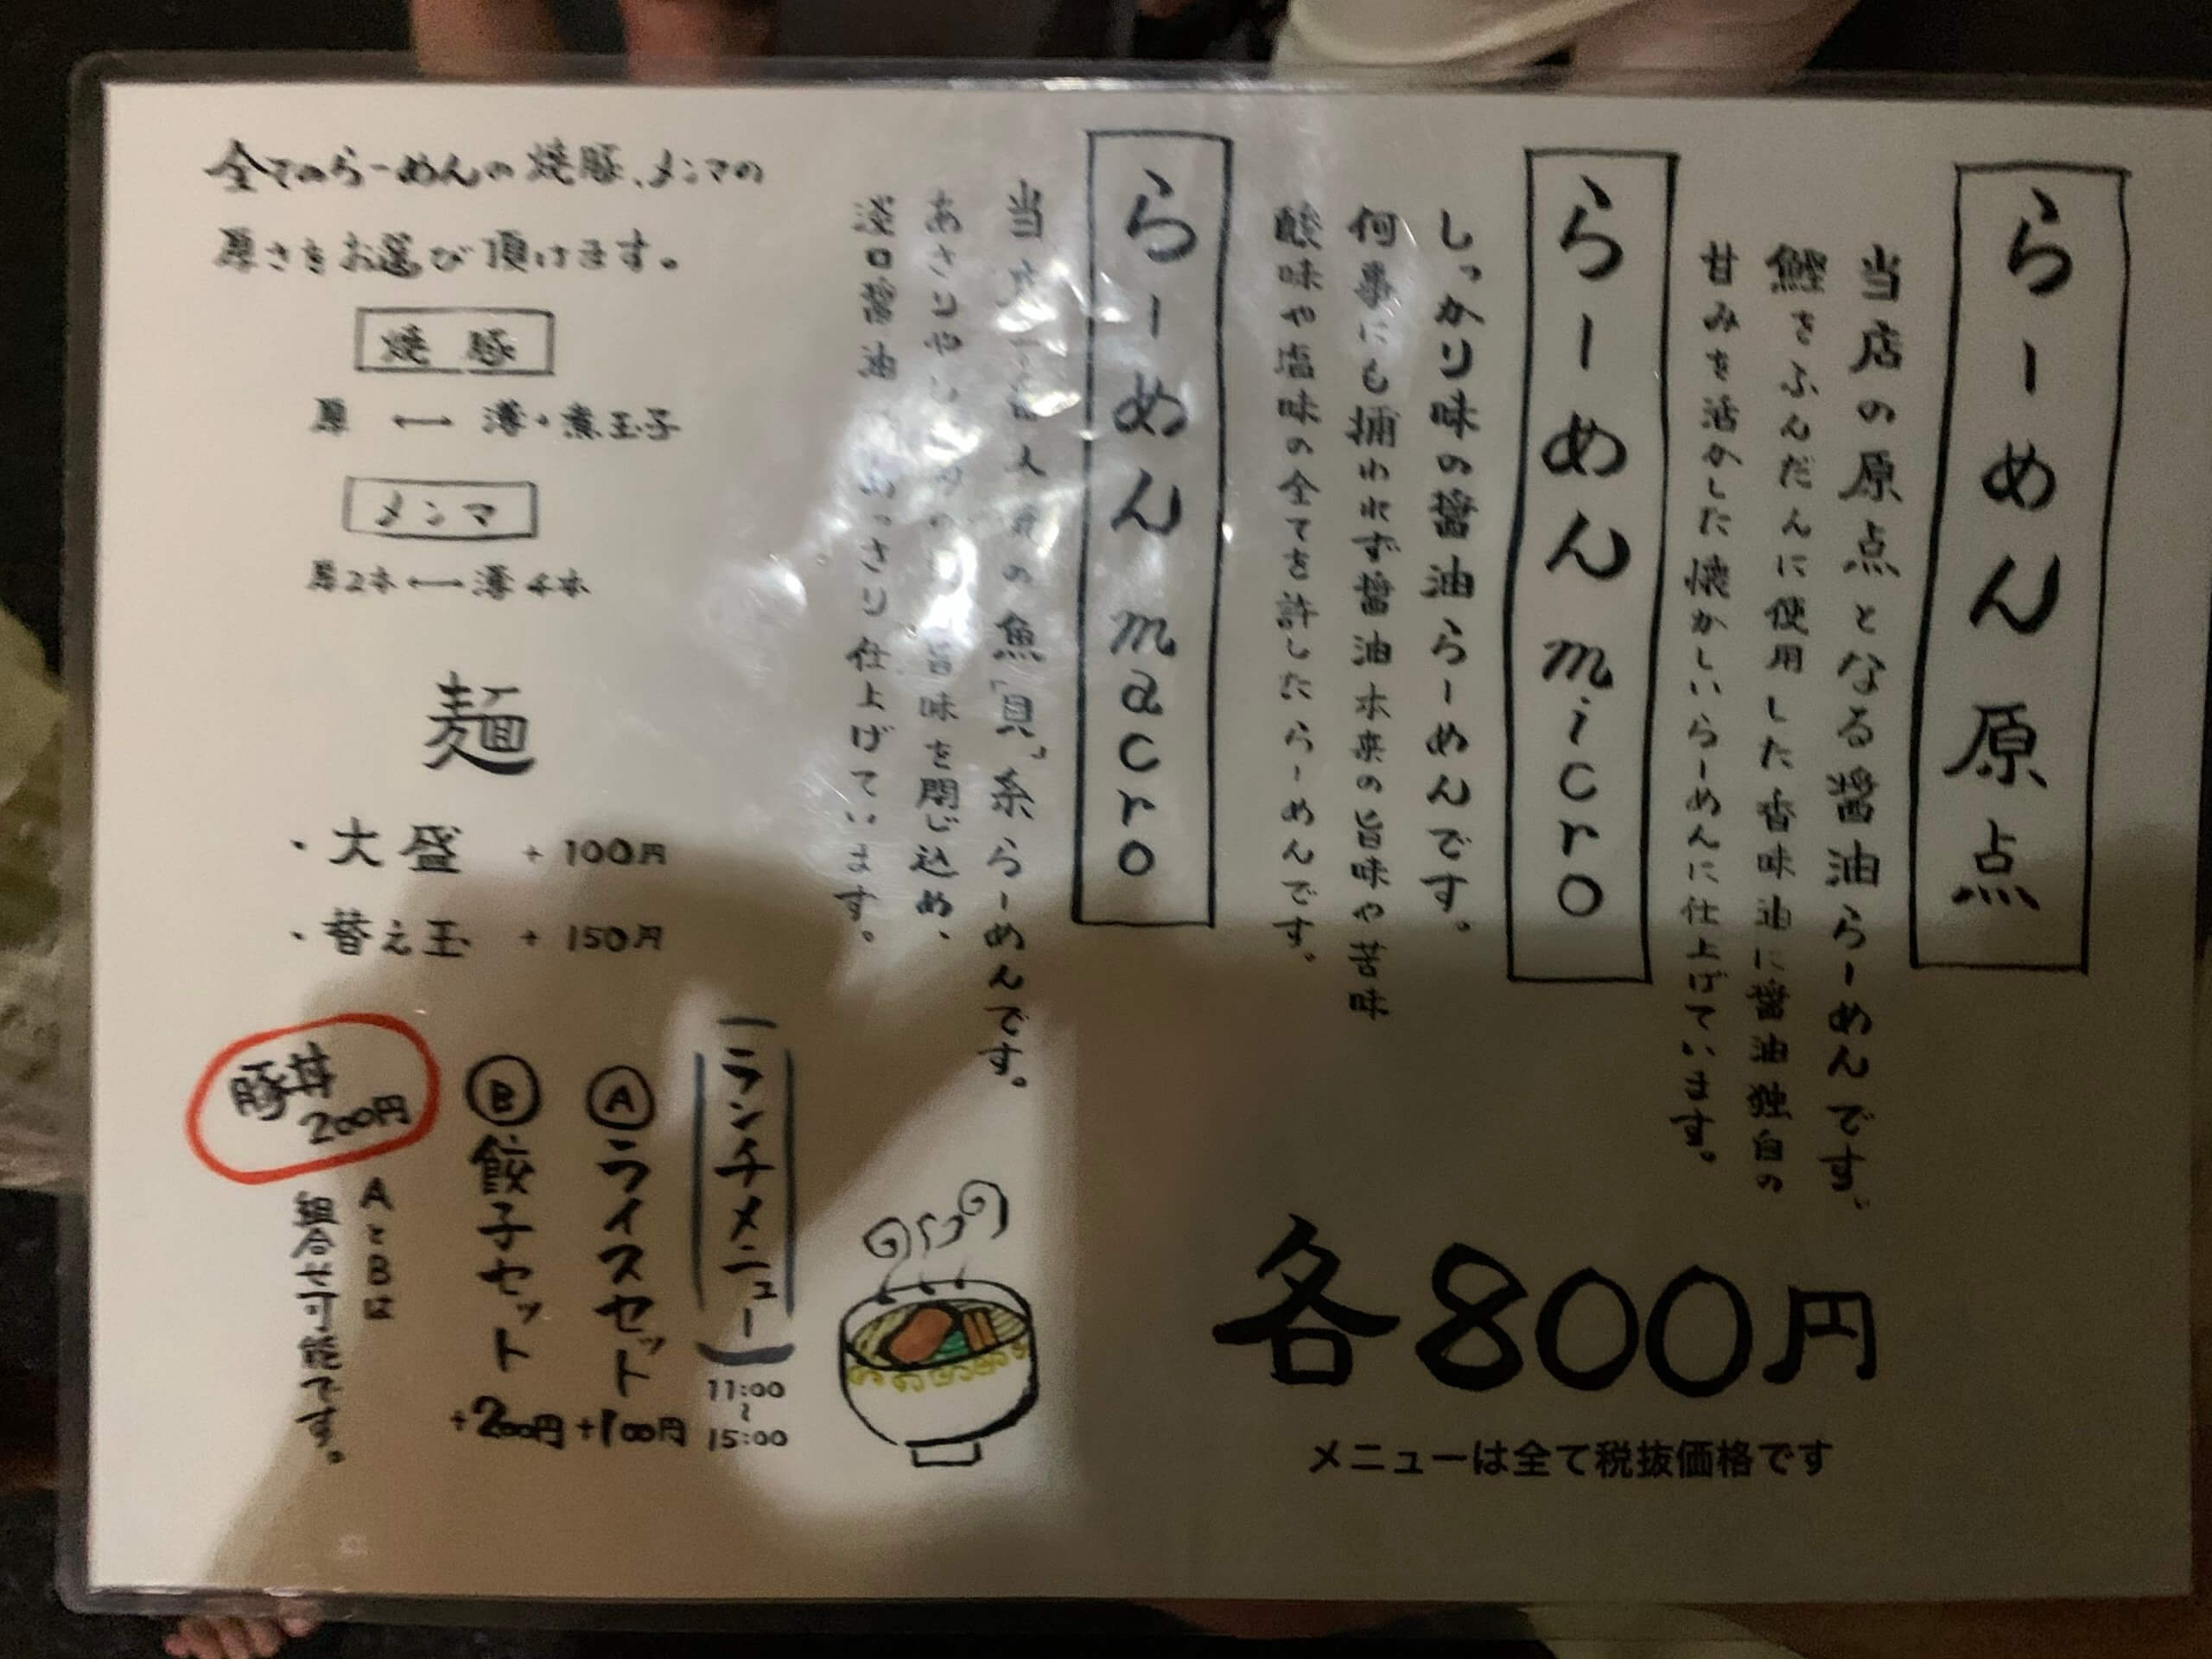 らーめん原点
当店の原点となる醤油らーめんです。
鰹をふんだんに使用した香味油に醤油独自の
甘みを活かした懐かしいらーめんに仕上げています。
らーめんmicro
しっかり味の醤油らーめんです。
何事にも捕われず醤油本来の旨味や苦味
酸味や塩味の全てを許したらーめんです。
らーめんmacro
当店一番人気の魚「貝」系らーめんです。
あさりや 旨味を閉じ込め、
淡口醤油 あっさり仕上げています。
各800円
メニューは全て税抜価格です
全てのらーめんの焼豚、メンマの
厚さをお選び頂けます。
焼豚
厚 ⟷ 薄+煮玉子
メンマ
厚2本⟷薄4本
麺
・大盛 +100円
・替え玉 +150円
ランチメニュー
11:00
~
15:00
Ⓐライスセット +100円
Ⓑ餃子セット +200円
AとBは
組合せ可能です。
豚丼
200円